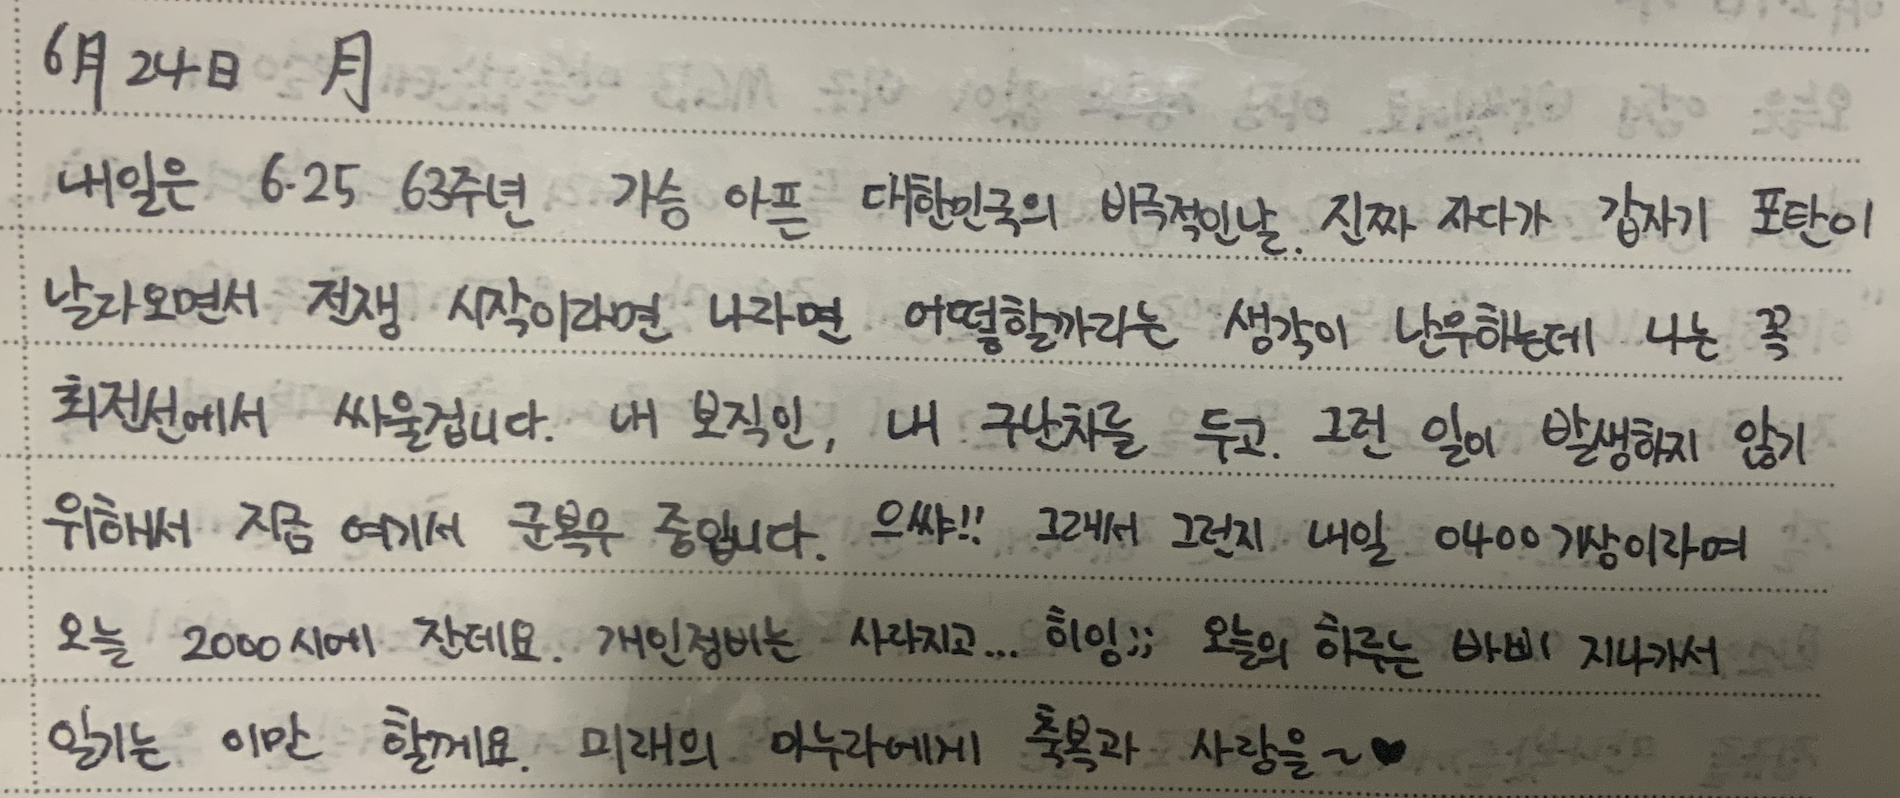 6月 24日 月
내일은 6.25 63주년 가슴 아픈 대한민국의 비극적인날. 진짜 자다가 갑자기 포탄이
날라오면서 전쟁 시작이라면 나라면 어떻할까라는 생각이 난무하는데 나는 꼭
최전선에서 싸울겁니다. 내 보직인, 내 구난차를 두고. 그런 일이 발생하지 않기
위해서 지금 여기서 군복무 중입니다. 으쌰!! 그래서 그런지 내일 0400기상이라며
오늘 2000시에 잔데요. 개인정비는 사라지고... 히잉;; 오늘의 하루는 바삐 지나가서
일기는 이만 할께요. 미래의 마누라에게 축복과 사랑을~♥